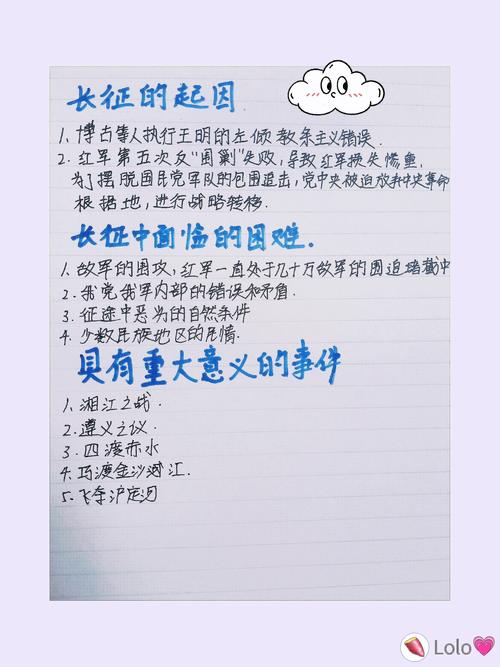 长征的起因
1. 博古等人执行王明的左倾教条主义错误.
2. 红军第五次反"围剿"失败,导致红军损失惨重.
为了摆脱国民党军队的包围追击,党中央被迫放弃中央革命
根据地,进行战略转移.
长征中面临的困难.
1. 敌军的围攻,红军一直处于几十万敌军的围追堵截中
2. 我党我军内部的错误和矛盾.
3. 征途中恶劣的自然条件
4. 少数民族地区的民情.
具有重大意义的事件
1. 湘江之战.
2. 遵义之议.
3. 四渡赤水
4. 巧渡金沙江.
5. 飞夺泸定河
Lolo